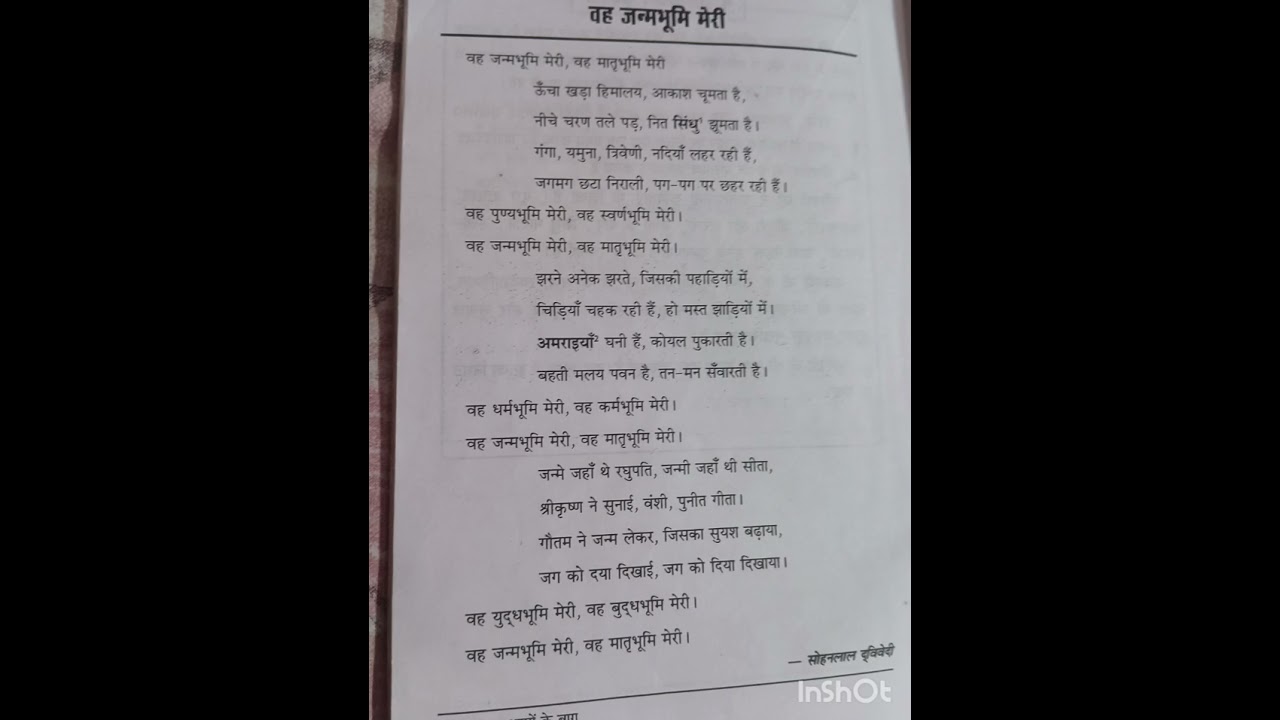 वह जन्मभूमि मेरी
वह जन्मभूमि मेरी, वह मातृभूमि मेरी
ऊँचा खड़ा हिमालय, आकाश चूमता है,
नीचे चरण तले पड़, नित सिंधु¹ झूमता है।
गंगा, यमुना, त्रिवेणी, नदियाँ लहर रही हैं,
जगमग छटा निराली, पग-पग पर छहर रही हैं।
वह पुण्यभूमि मेरी, वह स्वर्णभूमि मेरी।
वह जन्मभूमि मेरी, वह मातृभूमि मेरी।
झरने अनेक झरते, जिसकी पहाड़ियों में,
चिड़ियाँ चहक रही हैं, हो मस्त झाड़ियों में।
अमराइयाँ² घनी हैं, कोयल पुकारती है।
बहती मलय पवन है, तन-मन सँवारती है।
वह धर्मभूमि मेरी, वह कर्मभूमि मेरी।
वह जन्मभूमि मेरी, वह मातृभूमि मेरी।
जन्मे जहाँ थे रघुपति, जन्मी जहाँ थी सीता,
श्रीकृष्ण ने सुनाई, वंशी, पुनीत गीता।
गौतम ने जन्म लेकर, जिसका सुयश बढ़ाया,
जग को दया दिखाई, जग को दिया दिखाया।
वह युद्धभूमि मेरी, वह बुद्धभूमि मेरी।
वह जन्मभूमि मेरी, वह मातृभूमि मेरी।
— सोहनलाल द्विवेदी
InShOt
के बाग